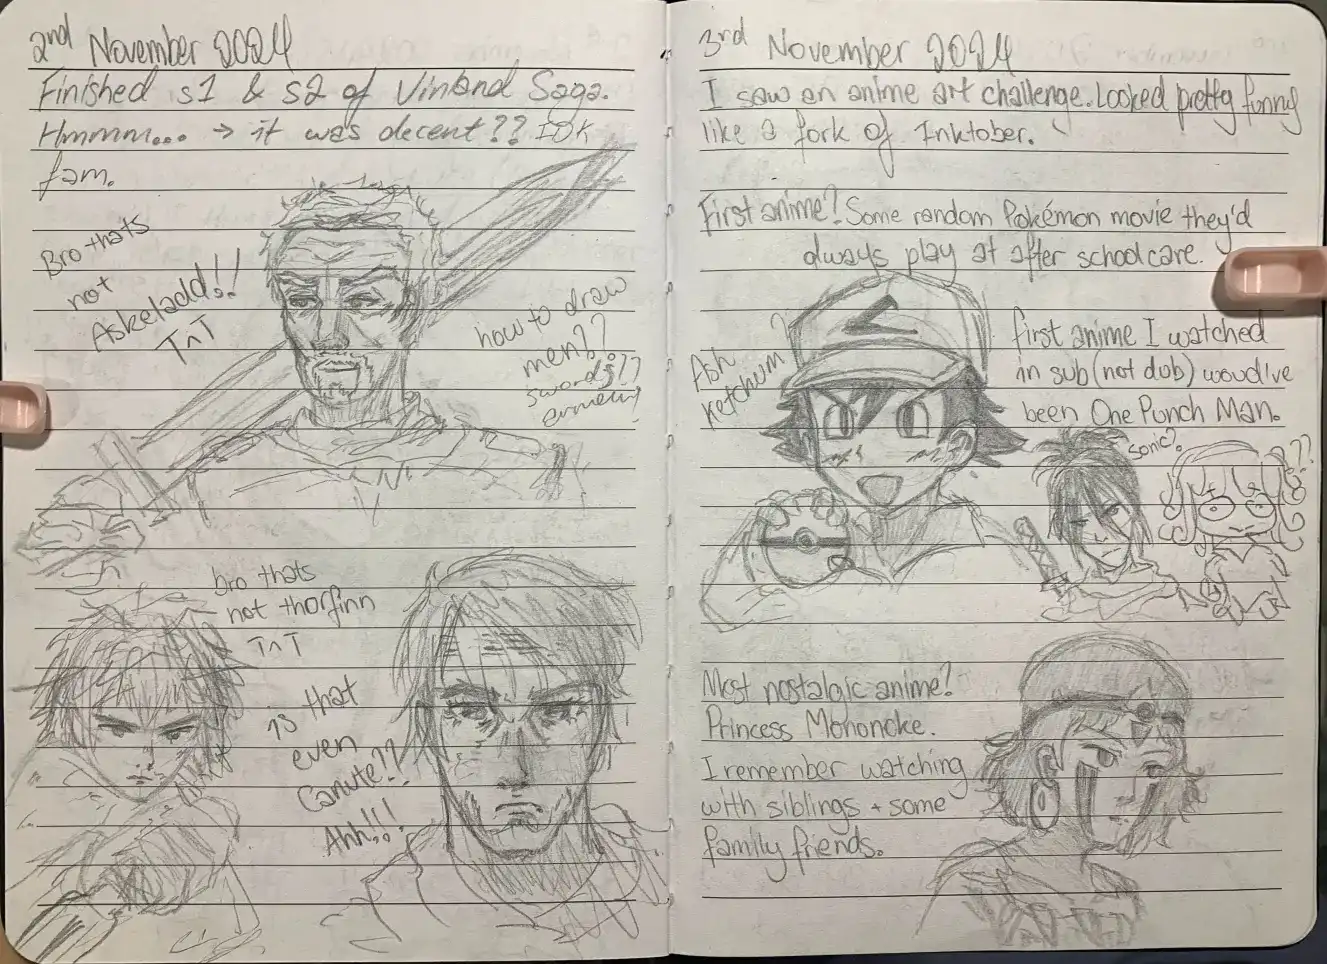 2nd November 2024
Finished s1 & s2 of Vinland Saga.
Hmmm... → it was decent?? IDK
fam.
Bro thats
not
Askeladd!!
TnT
how to draw
men??
swords??
bro thats
not thorfinn
TnT
is that
even
Canute??
Ahh!!!
3rd November 2024
I saw an anime art challenge. Looked pretty funny
like a fork of Inktober.
First anime? Some random Pokémon movie they'd
always play at after school care.
Ash
Ketchum?
first anime I watched
in sub (not dub) woudl've
been One Punch Man.
sonic?
???
Most nostalgic anime?
Princess Mononoke.
I remember watching
with siblings + some
family friends.